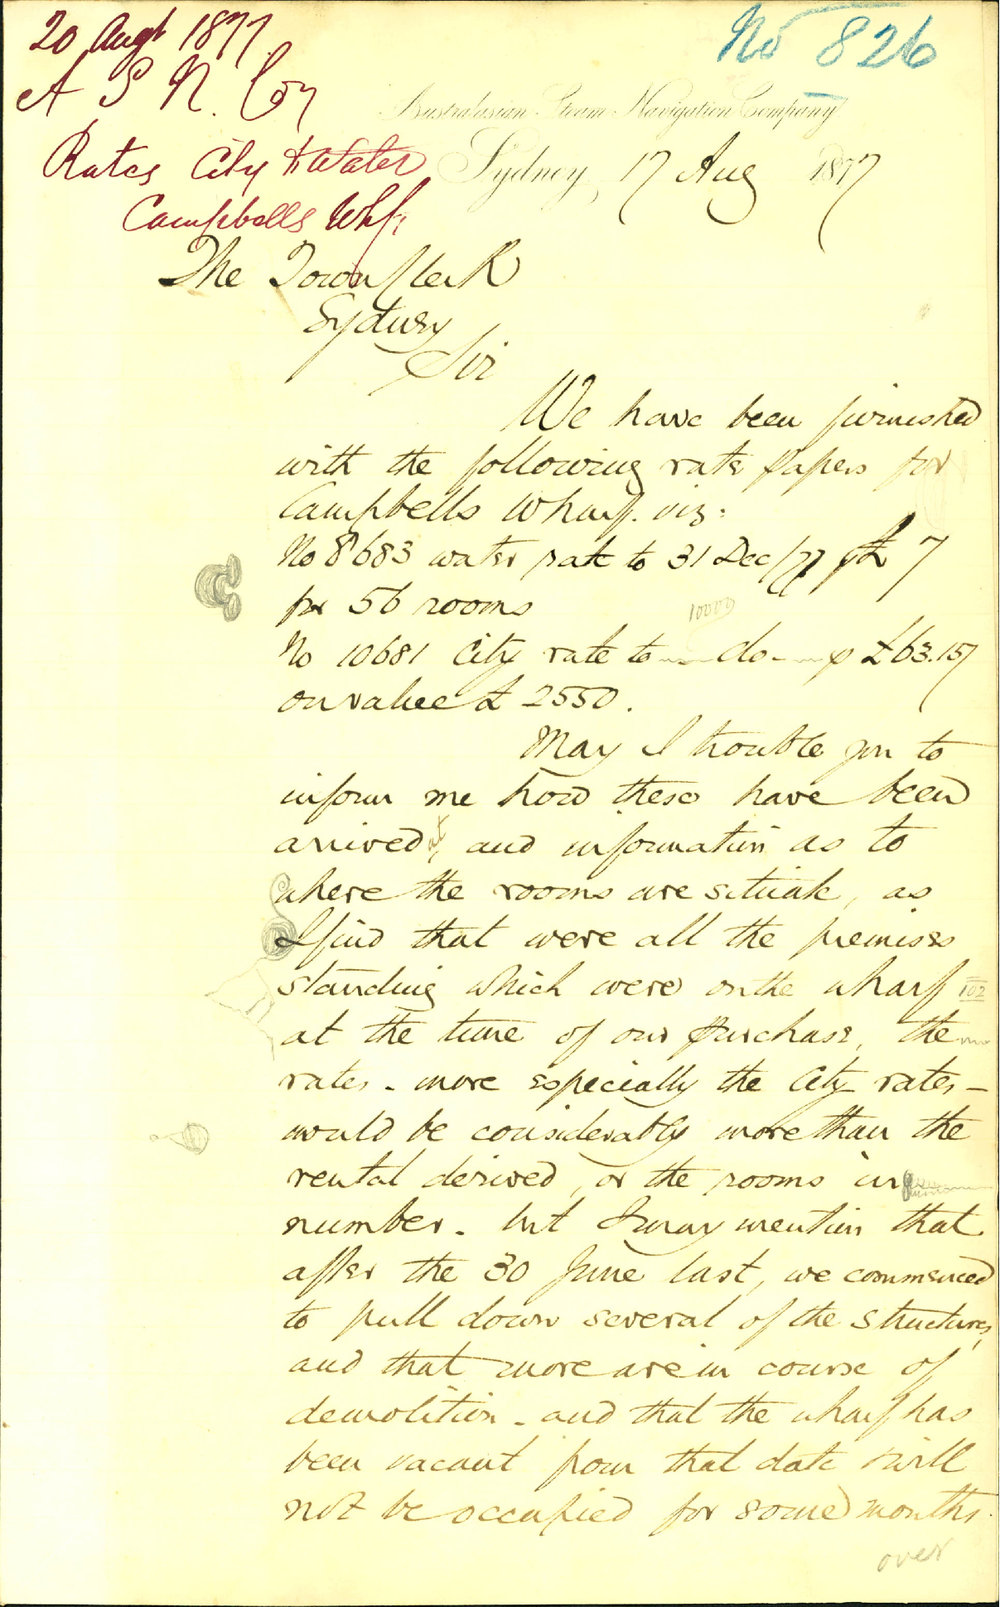 20 Augt 1877
No 826
A S N. Coy
Australasian Steam Navigation Company
Rates City & Water
Sydney, 17 Aug 1877
Campbells Whf.
The Town Clerk
Sydney
Sir
We have been furnished
with the following rate papers for
Campbells Wharf. viz:
No 8683 water rate to 31 Dec/77 £ 7
for 56 rooms
10000
No 10681 City rate to do £63.15/
on value £ 2550.
May I trouble you to
inform me how these have been
arrived, and information as to
where the rooms are situate, as
I find that were all the premises
standing which were on the wharf
102
at the time of our purchase, the
rates - more especially the City rates -
would be considerably more than the
rental derived, or the rooms in
number. but I may mention that
after the 30 June last, we commenced
to pull down several of the structures,
and that more are in course of
demolition - and that the wharf has
been vacant from that date & will
not be occupied for some months.
over